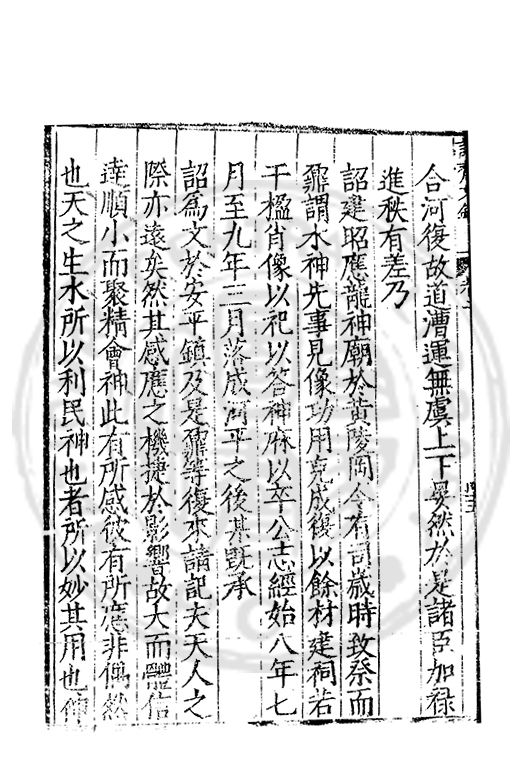 合河復故道漕運無虞上下晏然於是諸臣加祿
進秩有差乃
詔建昭應龍神廟於黃陵岡令有司歲時致祭而
鼐謂水神先事見像功用克成復以餘材建祠若
干楹肖像以祀以答神庥以卒公志經始八年七
月至九年三月落成河平之後某既承
詔為文於安平鎮及是鼐等復來請記夫天人之
際亦遠矣然其感應之機捷於影響故大而體信
達順小而聚精會神此有所感彼有所應非偶然
也天之生水所以利民神也者所以妙其用也